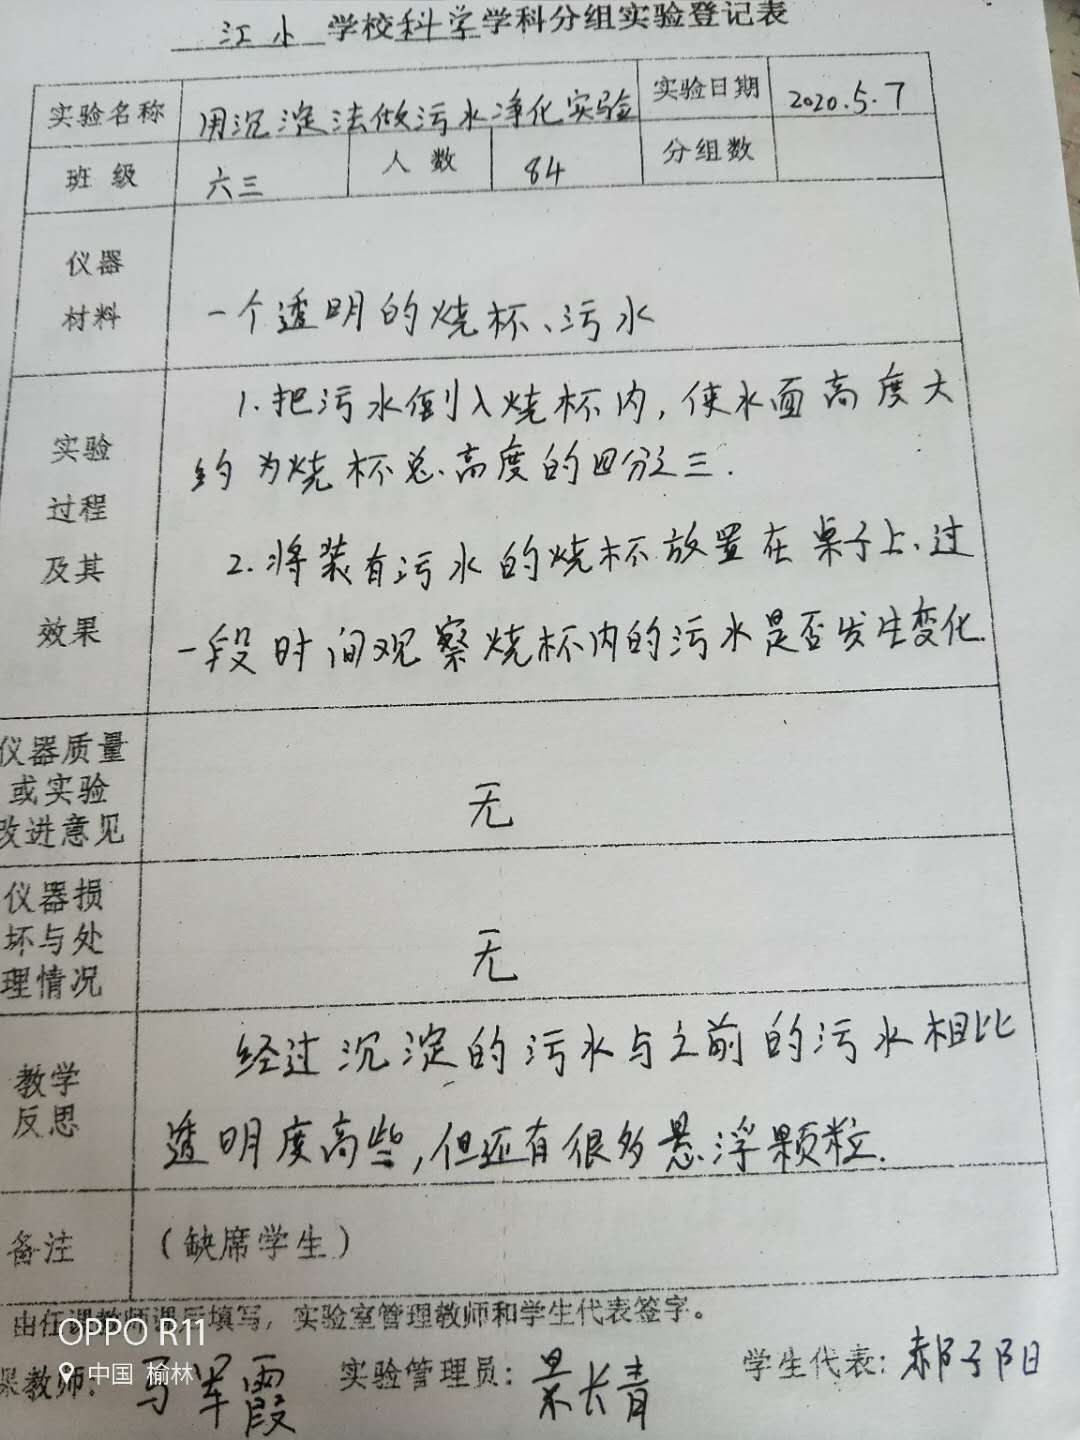 江小 学校科学学科分组实验登记表
实验名称 用沉淀法做污水净化实验 实验日期 2020.5.7
班级 六三 人数 84 分组数
仪器
材料
一个透明的烧杯、污水
实验
过程
及其
效果
1.把污水倒入烧杯内,使水面高度大
约为烧杯总高度的四分之三.
2.将装有污水的烧杯放置在桌子上、过
一段时间观察烧杯内的污水是否发生变化.
仪器质量
或实验
改进意见
无
仪器损
坏与处
理情况
无
教学
反思
经过沉淀的污水与之前的污水相比
透明度高些,但还有很多悬浮颗粒.
备注 (缺席学生)
由任课教师课后填写,实验室管理教师和学生代表签字。
课教师: 马军霞 实验管理员: 景长青 学生代表: 郝子阳
OPPO R11
中国 榆林